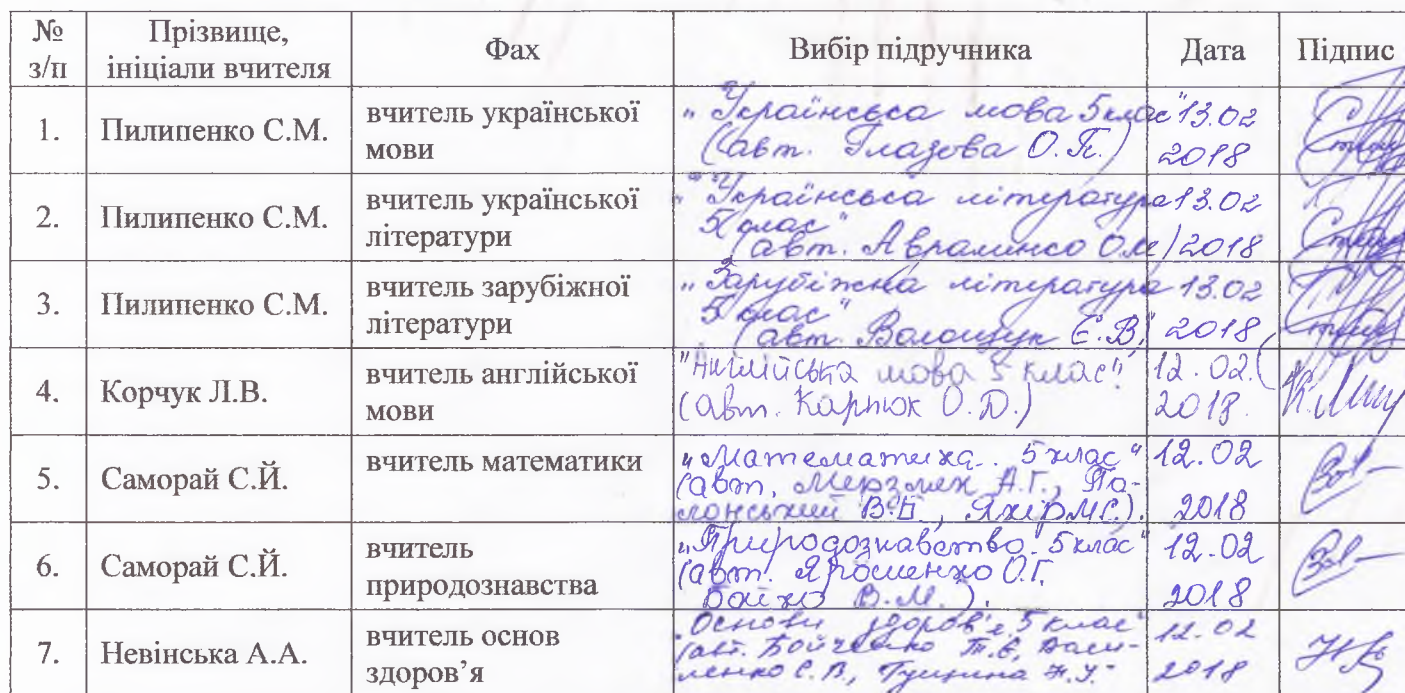 № з/п Прізвище, ініціали вчителя Фах Вибір підручника Дата Підпис
1. Пилипенко С.М. вчитель української мови "Українська мова 5 клас" (авт. Глазова О.П.) 13.02 2018
2. Пилипенко С.М. вчитель української літератури "Українська література 5 клас" (авт. Авраменко О.М) 13.02 2018
3. Пилипенко С.М. вчитель зарубіжної літератури "Зарубіжна література 5 клас" (авт. Волощук Є.В.) 13.02 2018
4. Корчук Л.В. вчитель англійської мови "Англійська мова 5 клас" (авт. Карпюк О.Д.) 12.02. 2018.
5. Саморай С.Й. вчитель математики "Математика. 5 клас" (авт. Мерзляк А.Г., Полонський В.Б., Якір М.С.). 12.02 2018
6. Саморай С.Й. вчитель природознавства "Природознавство" 5 клас" (авт. Ярошенко О.Г. Бойко В.М.). 12.02 2018
7. Невінська А.А. вчитель основ здоров’я "Основи здоров'я, 5 клас" (авт. Бойченко Т.Є, Василенко С.В, Гущина Н.І. 12.02 2018